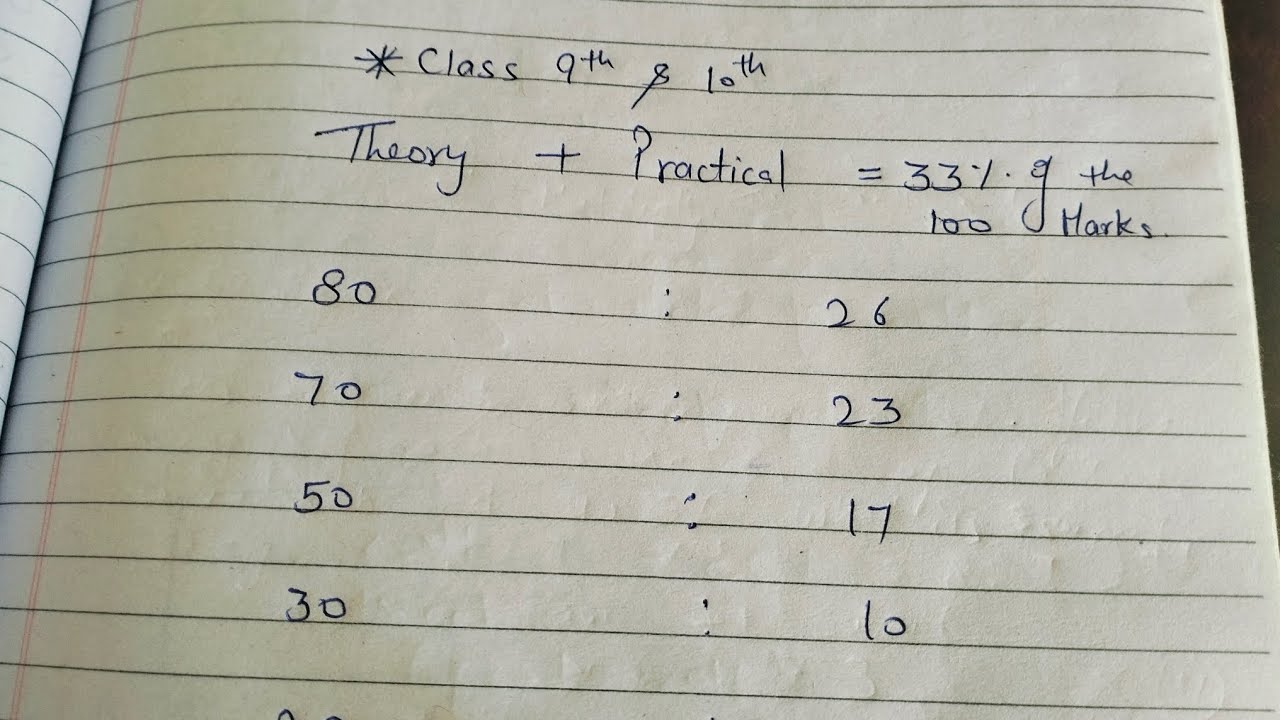 * Class 9th & 10th
Theory + Practical = 33% of the
100 Marks.
80 : 26
70 : 23
50 : 17
30 : 10